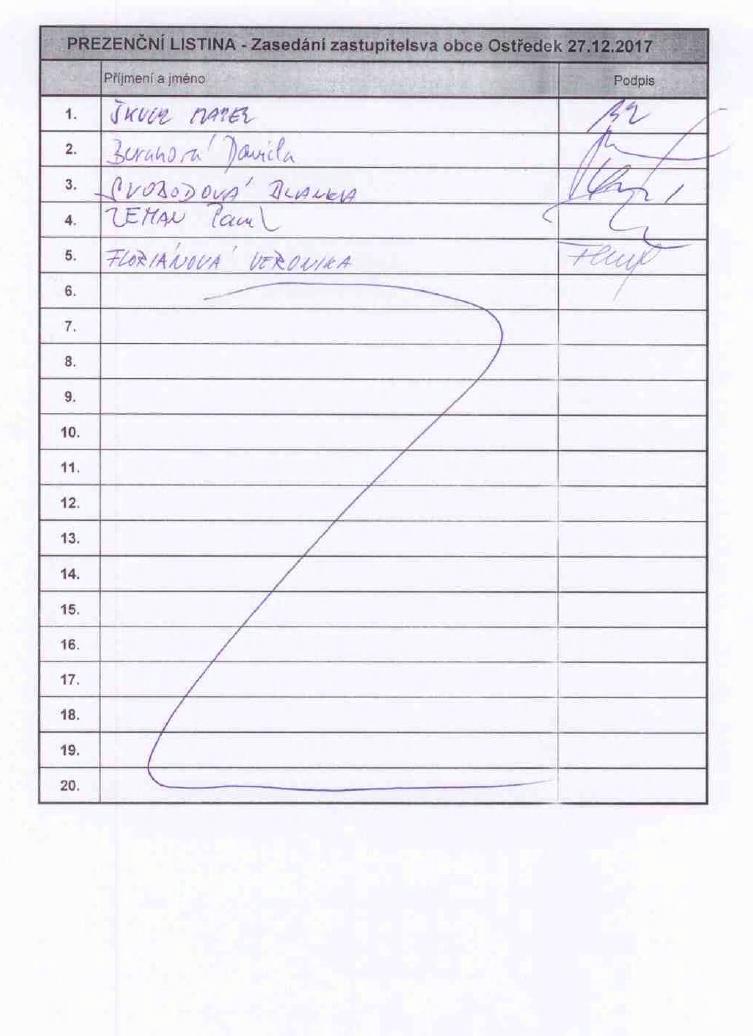 PREZENČNÍ LISTINA - Zasedání zastupitelsva obce Ostředek 27.12.2017
Příjmení a jméno Podpis
1.
2.
3. SVOBODOVÁ BLANKA
4. ZEMAN Pavel
5. FLORIÁNOVÁ VERONIKA
6.
7.
8.
9.
10.
11.
12.
13.
14.
15.
16.
17.
18.
19.
20.